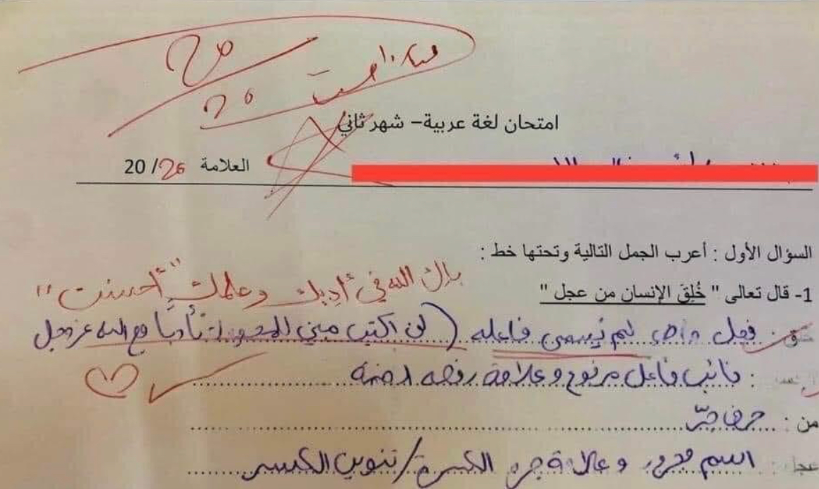 ممتاز أحسنت
20
20
امتحان لغة عربية– شهر ثاني
العلامة 20 /20
السؤال الأول : أعرب الجمل التالية وتحتها خط :
بارك الله في أدبك وعلمك "أحسنت"
1- قال تعالى " خُلِقَ الإنسان من عجل "
خلق: فعل ماضٍ لم يسمى فاعله (لن أكتب مبني للمجهول تأدبًا مع الله عز وجل
: نائب فاعل مرفوع وعلامة رفعه الضمة
من : حرف جرّ
عجل: اسم مجرور وعلامة جره الكسرة/تنوين الكسر